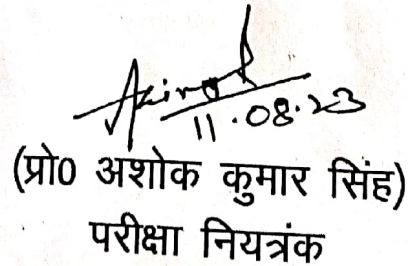 11.08.23
(प्रो0 अशोक कुमार सिंह)
परीक्षा नियत्रंक